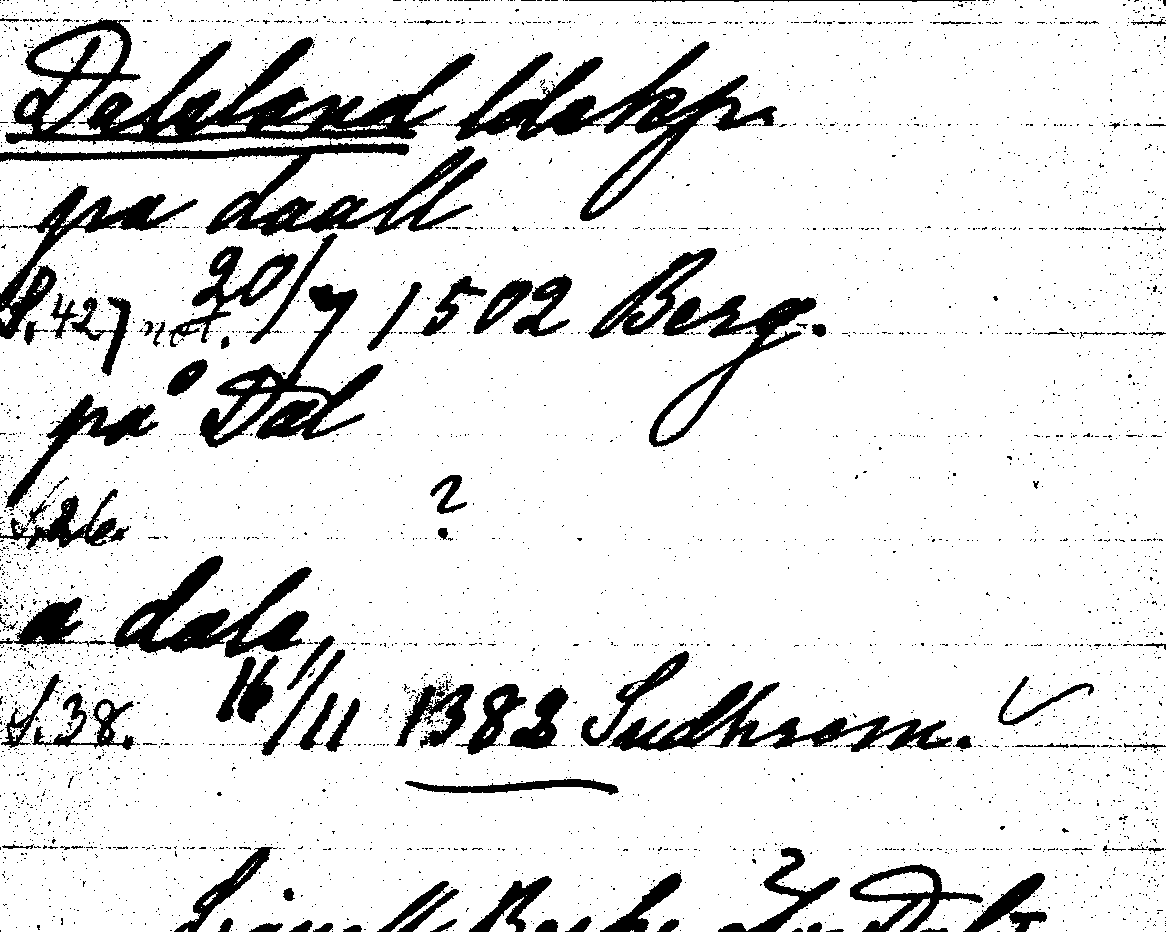 Dalsland ldskp.
pa daall
S. 427 not. 20/7 1502 Berg.
på Dal
S. 26. ?
a dale
S. 38. 16/11 1382 Sudhrom.